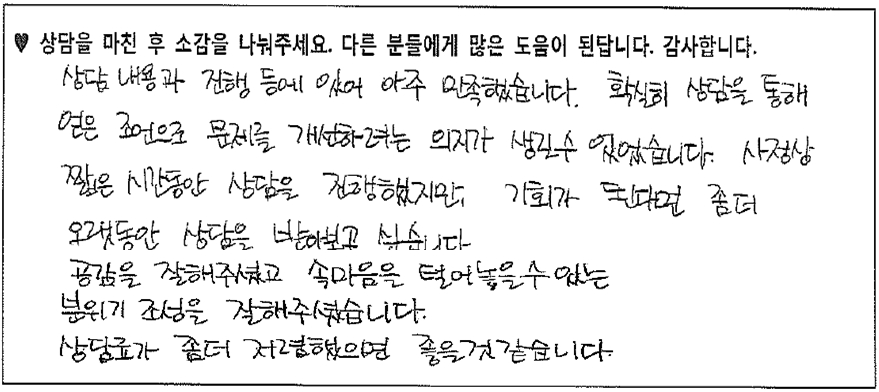 ♥ 상담을 마친 후 소감을 나눠주세요. 다른 분들에게 많은 도움이 된답니다. 감사합니다.
상담 내용과 진행 등에 있어 아주 만족했습니다. 확실히 상담을 통해
얻은 조언으로 문제를 개선하려는 의지가 생길수 있었습니다. 사정상
짧은 시간동안 상담을 진행했지만, 기회가 된다면 좀더
오랫동안 상담을 받아보고 싶습니다
공감을 잘해주셨고 속마음을 털어놓을수 있는
분위기 조성을 잘해주셨습니다.
상담료가 좀더 저렴했으면 좋을것 같습니다.